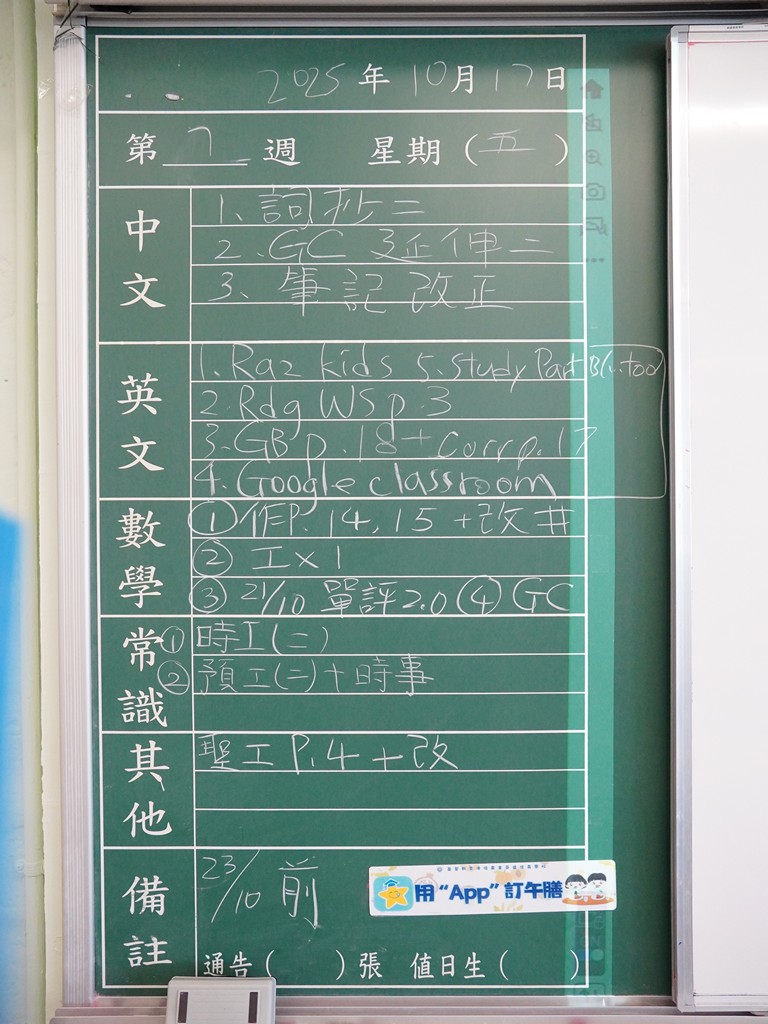 2025年10月17日
第 7 週 星期(五)
中文
1. 詞抄二
2. GC 延伸二
3. 筆記改正
英文
1. Raz kids 5. Study Part B(1. too)
2. Rdg WS p.3
3. GB p.18 + corr p.17
4. Google classroom
數學
① 作P.14, 15 + 改#
② 工x1
③ 21/10 單評2.0 ④ GC
常識
① 時工(二)
② 預工(二)+時事
其他
聖工 P.4 + 改
備註
23/10 前
用“App”訂午膳
通告( )張 值日生( )